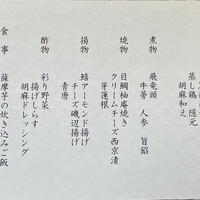 蒸し鶏 隠元
胡麻和え
煮物
飛竜頭
牛蒡 人参 旨餡
焼物
目鯛柚庵焼き
クリームチーズ西京漬
芽蓮根
揚物
鱚アーモンド揚げ
チーズ磯辺揚げ
青唐
酢物
彩り野菜
揚げしらす
胡麻ドレッシング
食事
薩摩芋の炊き込みご飯